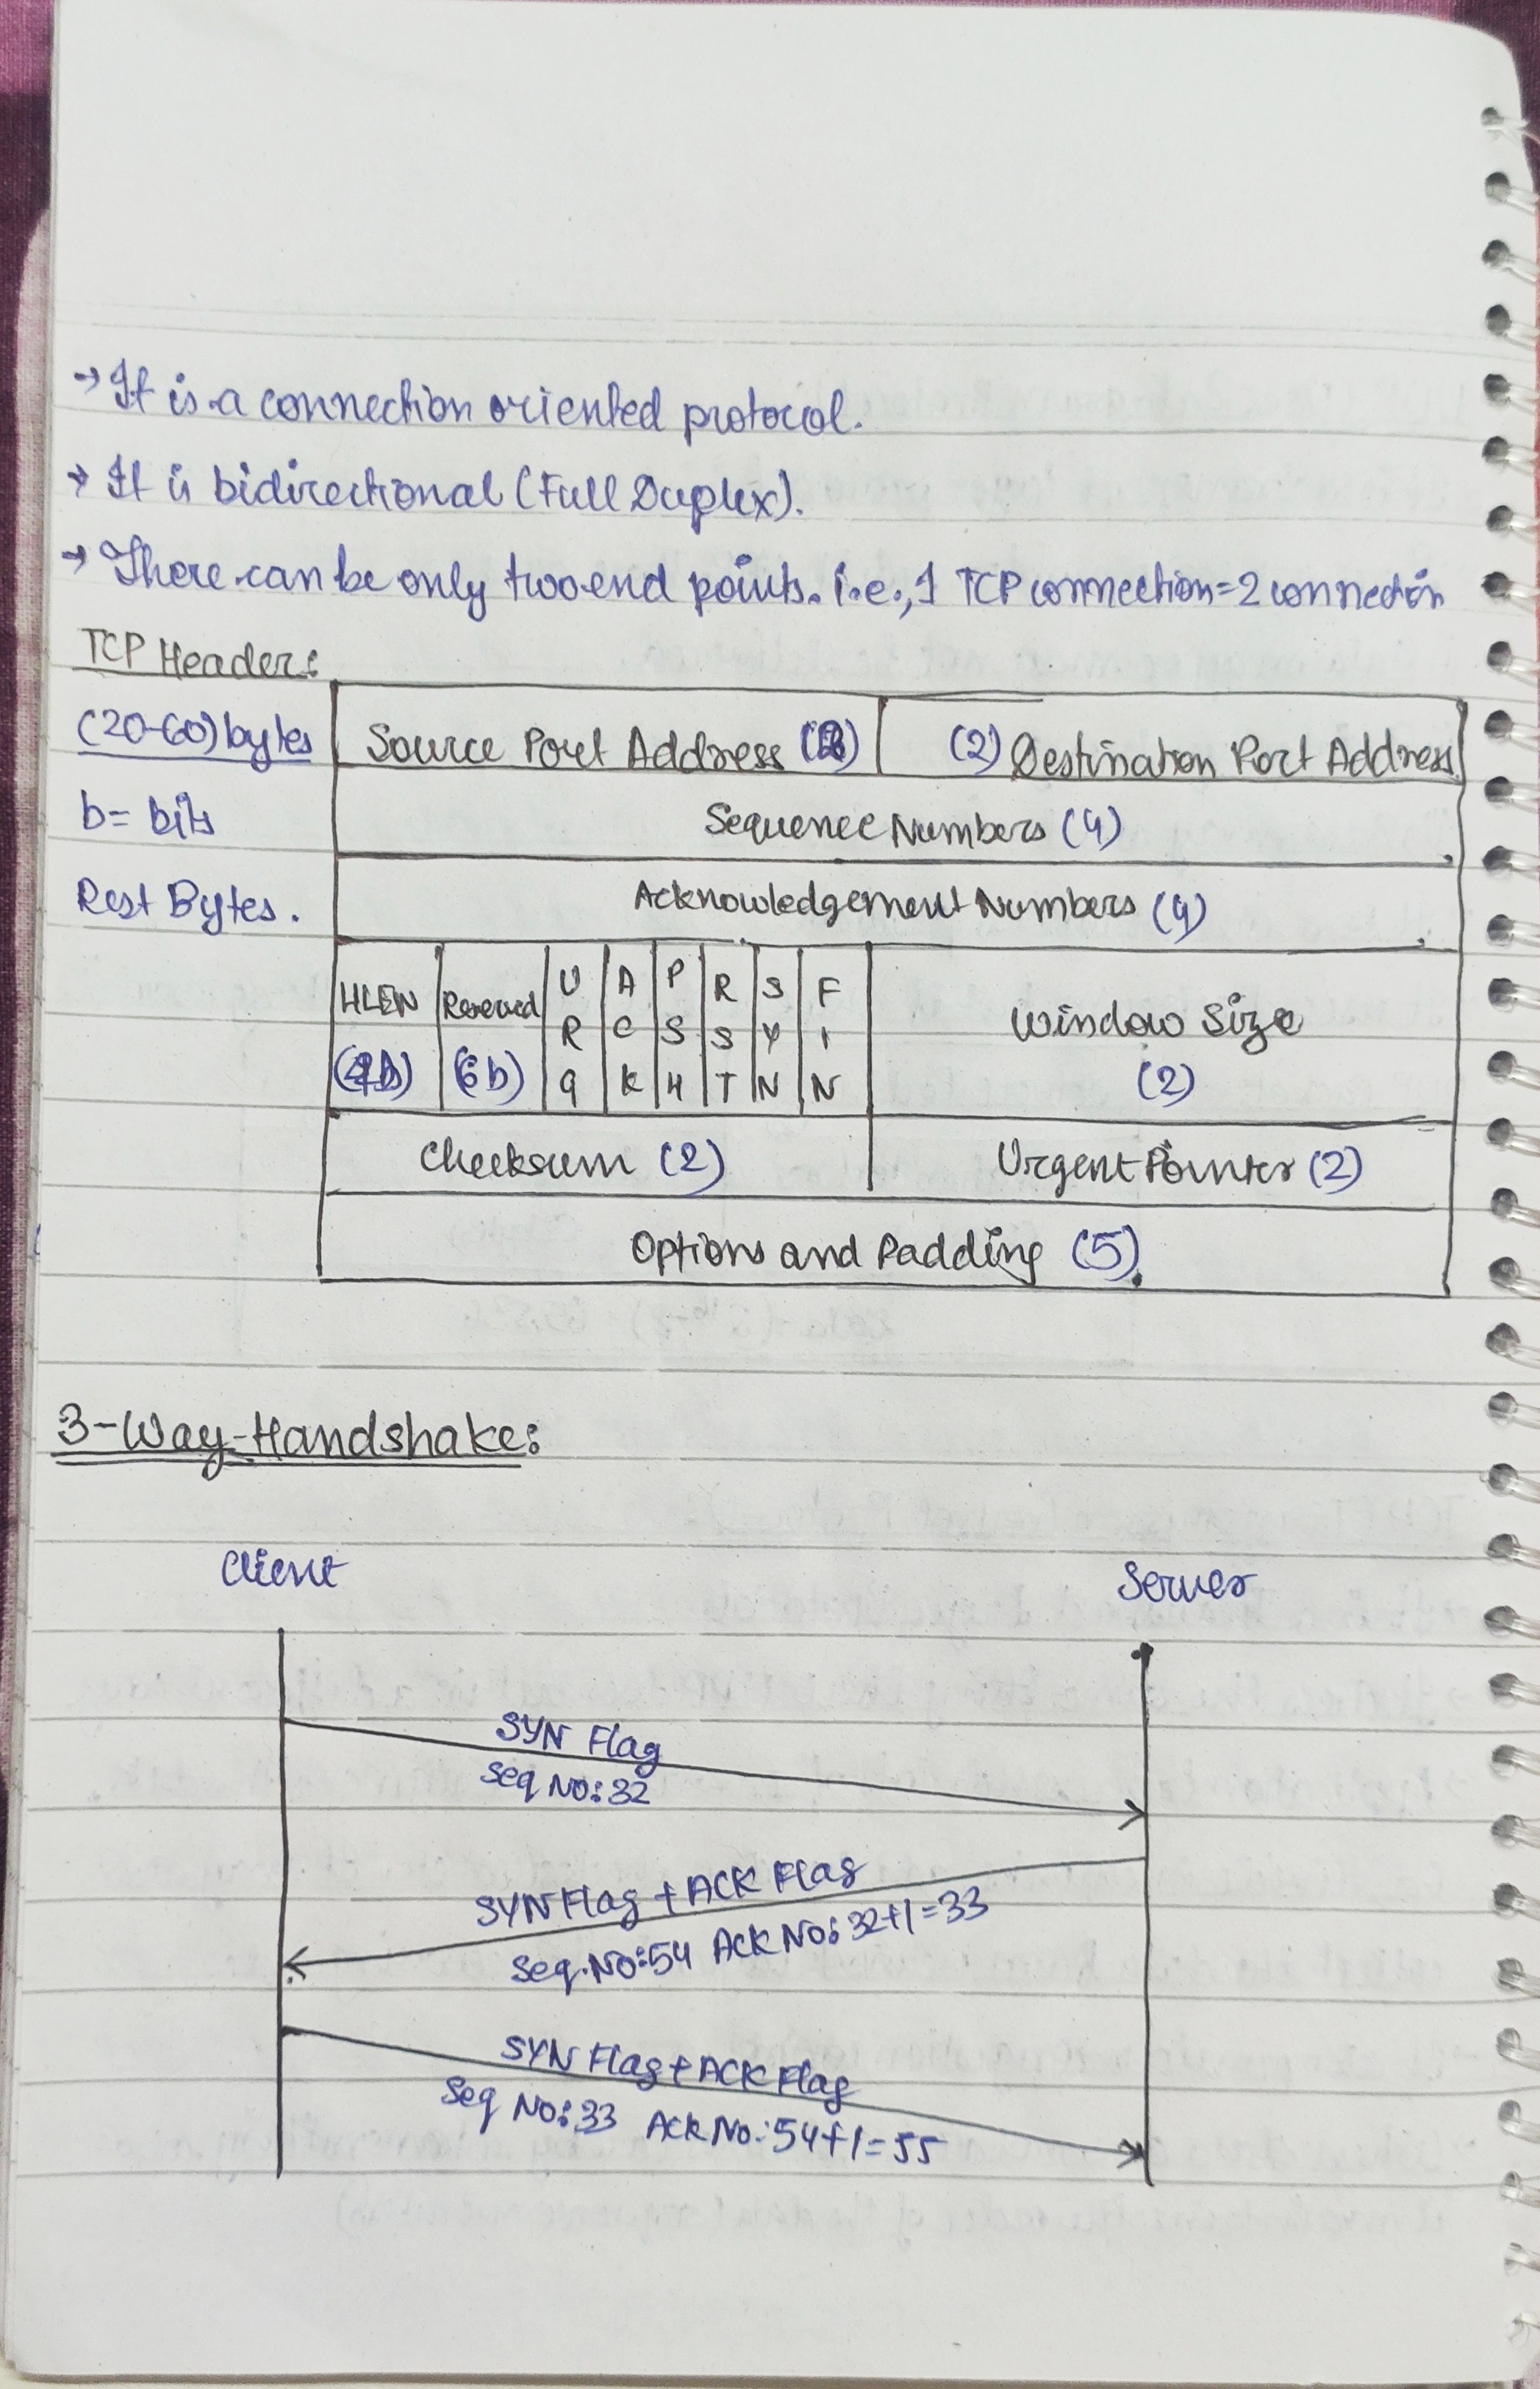 → It is a connection oriented protocol.
→ It is bidirectional (Full Duplex).
→ There can be only two end points. i.e., 1 TCP connection = 2 connection
TCP Header:
(20-60) bytes
b = bits
Rest Bytes.
Source Port Address (2) (2) Destination Port Address
Sequence Numbers (4)
Acknowledgement Numbers (4)
HLEN (4b) Reserved (6b) URG ACK PSH RST SYN FIN Window Size (2)
Checksum (2) Urgent Pointer (2)
Options and Padding (5).
3-Way-Handshake:
Client Server
SYN Flag
Seq No: 32
SYN Flag + ACK Flag
Seq. No: 54 ACK No: 32+1=33
SYN Flag + ACK Flag
Seq No: 33 Ack No.: 54+1=55